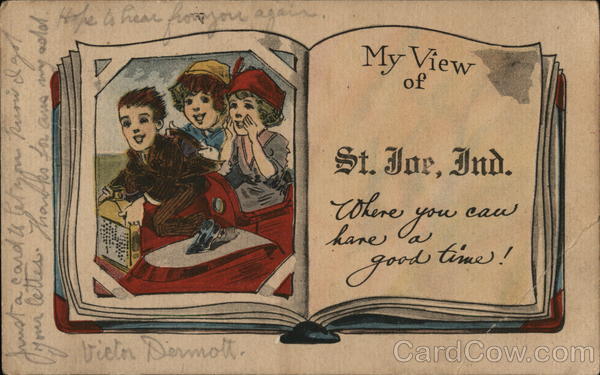 Hope to hear from you again.
Just a card to let you know I got
your letter. Thanks for
My View
of
St. Joe, Ind.
Where you can
have a
good time!
Victor Dermott.
CardCow.com